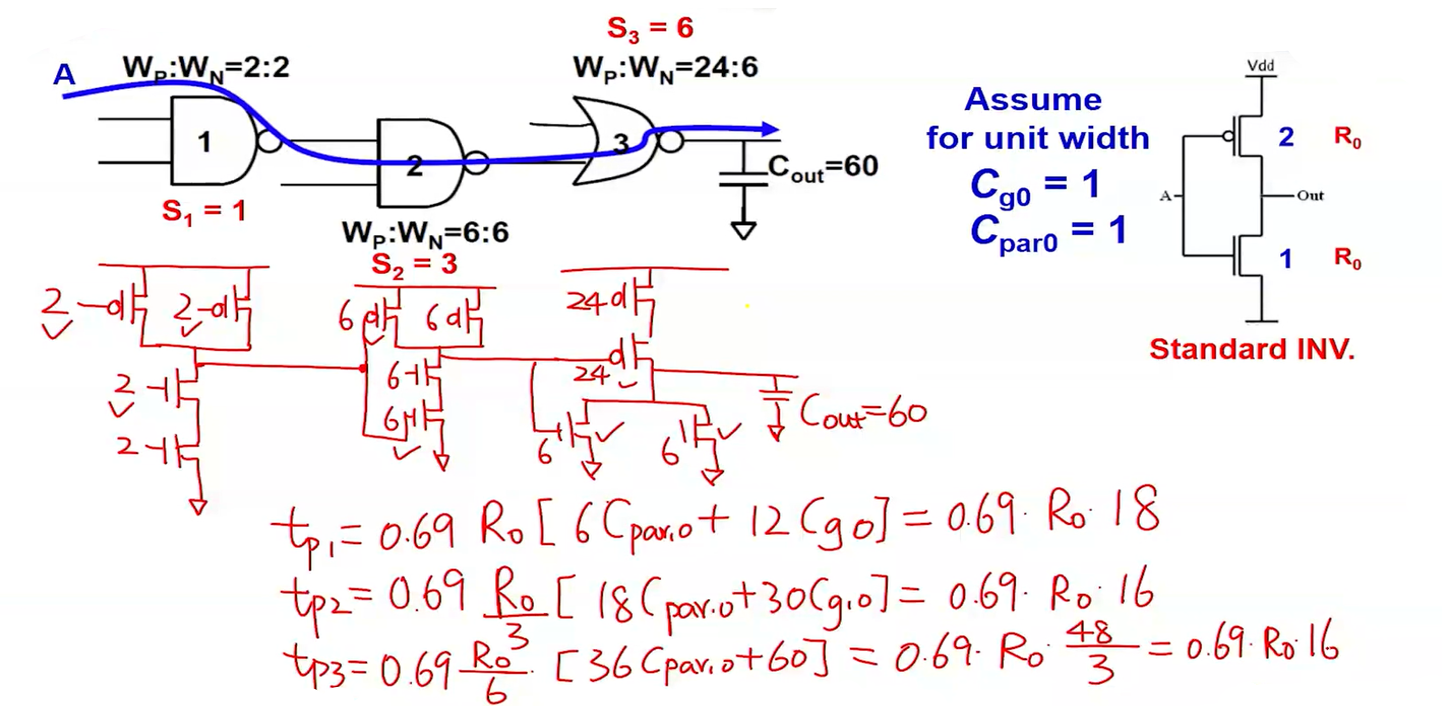 S₃ = 6
A
W_P:W_N=2:2
W_P:W_N=24:6
1
2
3
C_out=60
S₁ = 1
W_P:W_N=6:6
S₂ = 3
Assume
for unit width
C_g0 = 1
C_par0 = 1
Vdd
2 R₀
A
Out
1 R₀
Standard INV.
2
2
2
2
6
6
6
6
24
24
6
6
C_out=60
t_p1 = 0.69 R₀ [ 6C_par,0 + 12Cg0] = 0.69· R₀· 18
t_p2 = 0.69 R₀/3 [ 18C_par,0+30C_g,0] = 0.69· R₀· 16
t_p3 = 0.69 R₀/6 · [36C_par,0+60] = 0.69· R₀· 48/3 = 0.69·R₀·16